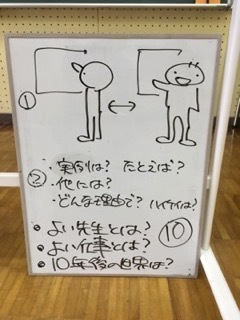 ①
② ・実例は？ たとえば？
・他には？
・どんな理由で？ ハイライトは？
• よい先生とは？ ⑩
• よい仕事とは？
• 10年後の世界は？